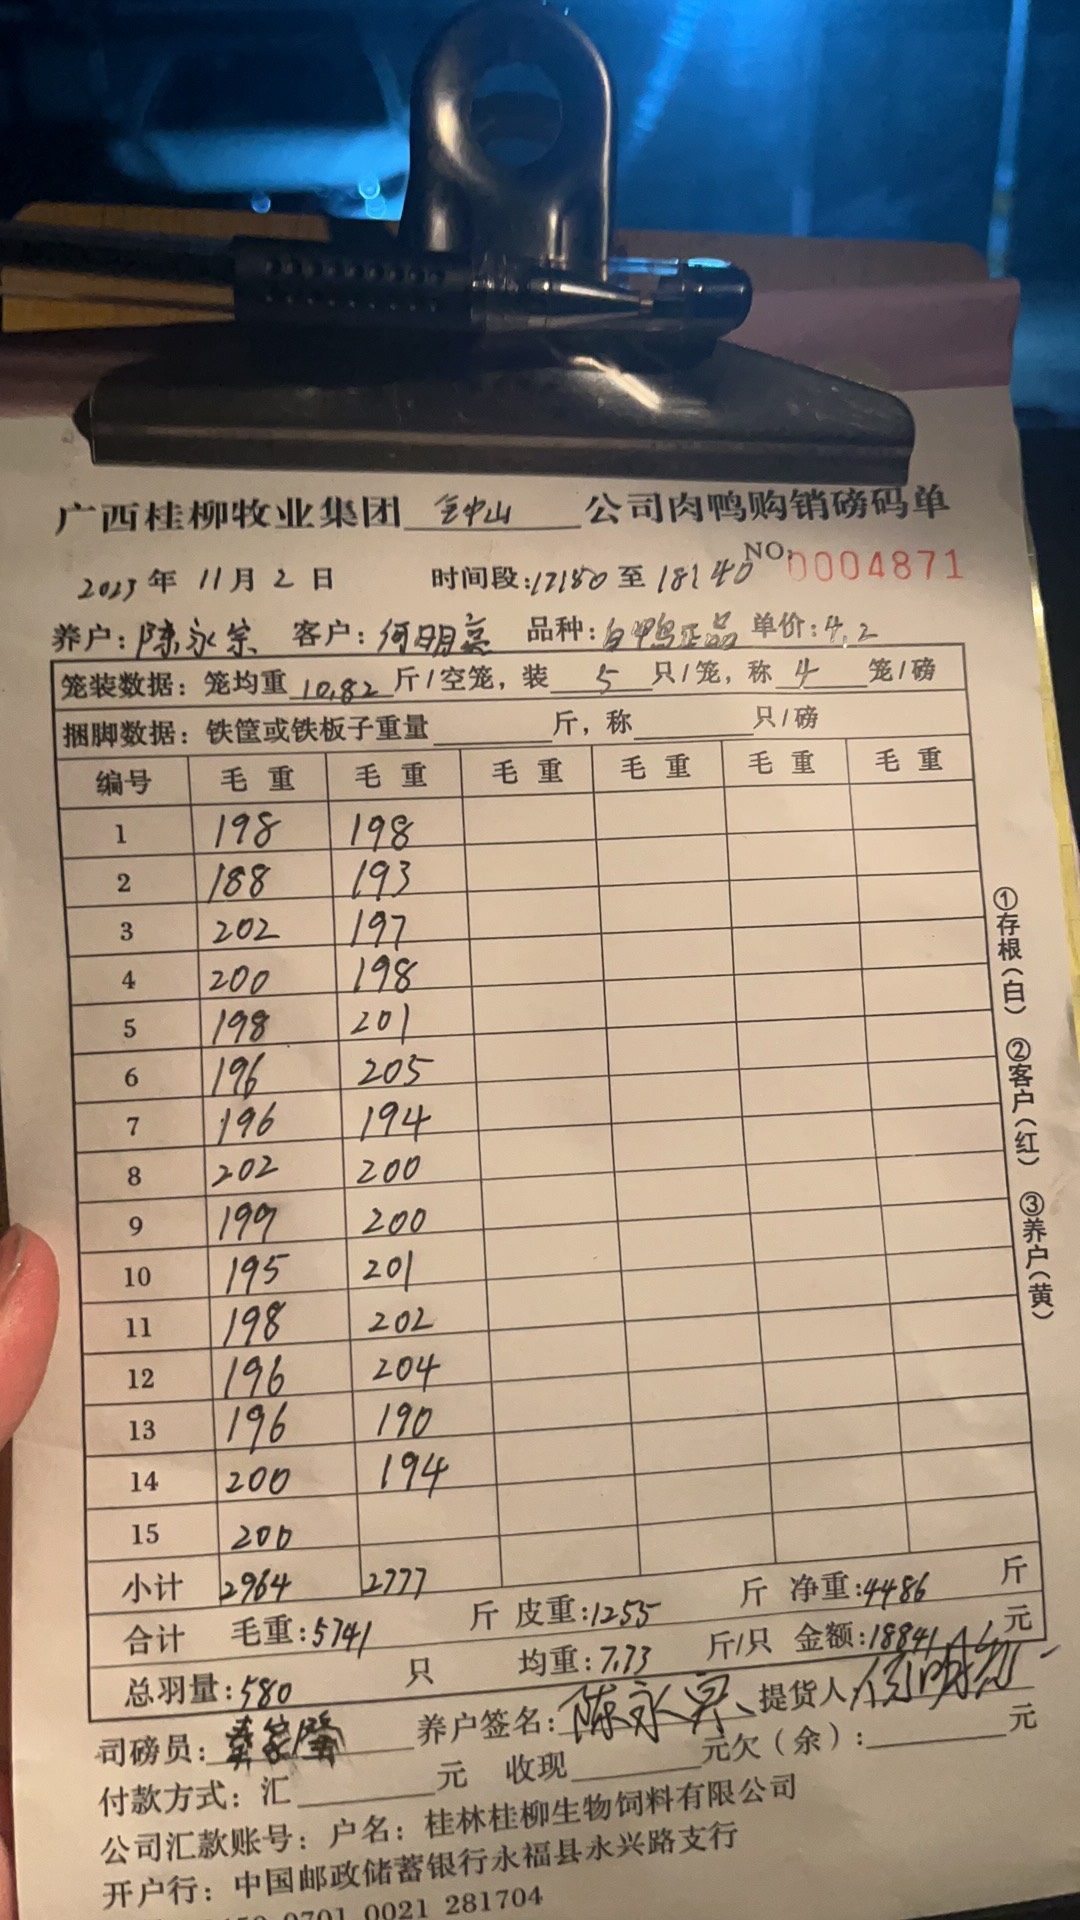 广西桂柳牧业集团 公司肉鸭购销磅码单
2023 年 11 月 2 日 时间段:17:50 至 18:40 NO:0004871
养户:陈永宗 客户:何明亮 品种:白鸭正品 单价:4.2
笼装数据:笼均重 10.82 斤/空笼,装 5 只/笼,称 4 笼/磅
捆脚数据:铁筐或铁板子重量 斤,称 只/磅
编号 毛重 毛重 毛重 毛重 毛重 毛重
1 198 198
2 188 193
3 202 197
4 200 198
5 198 201
6 196 205
7 196 194
8 202 200
9 199 200
10 195 201
11 198 202
12 196 204
13 196 190
14 200 194
15 200
小计 2964 2777
合计 毛重:5741 斤 皮重:1255 斤 净重:4486 斤
总羽量:580 只 均重:7.73 斤/只 金额:18841 元
司磅员: 养户签名:陈永宗 提货人
付款方式:汇 元 收现 元欠(余): 元
公司汇款账号:户名:桂林桂柳生物饲料有限公司
开户行:中国邮政储蓄银行永福县永兴路支行
0701 0021 281704
①存根(白) ②客户(红) ③养户(黄)